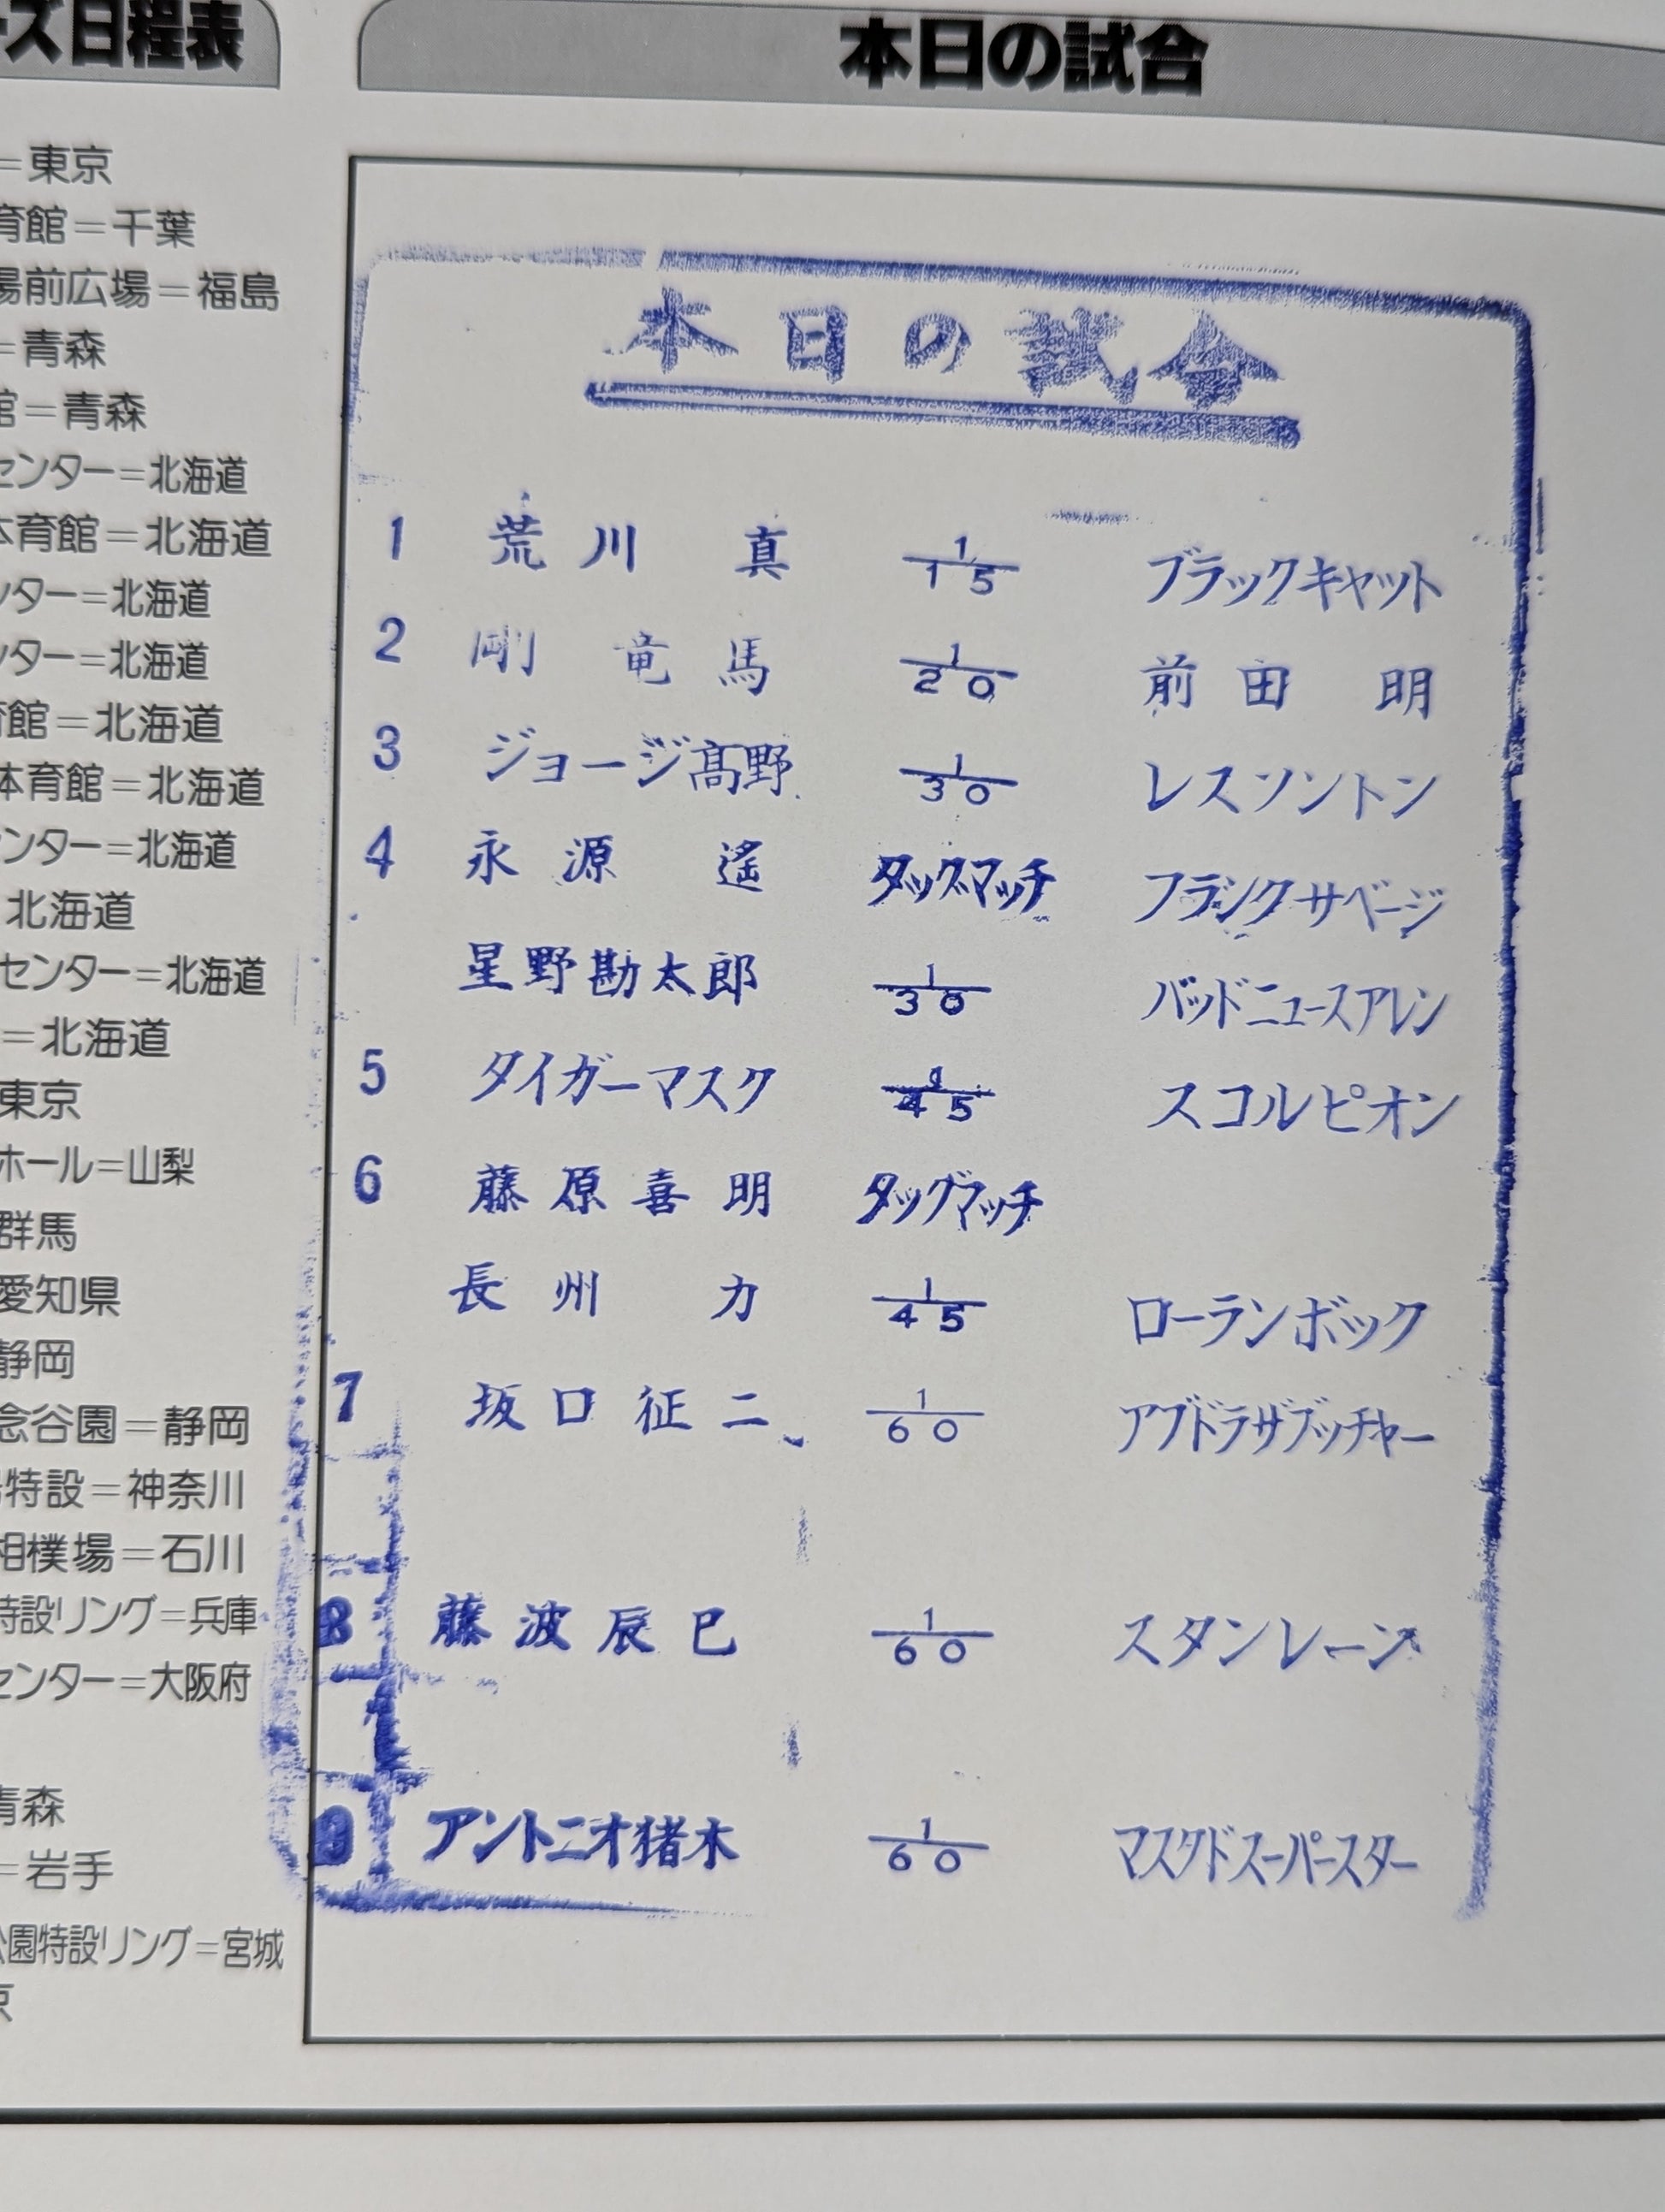 ーズ日程表
=東京
育館=千葉
場前広場=福島
=青森
館=青森
センター=北海道
体育館=北海道
ンター=北海道
ンター=北海道
育館=北海道
体育館=北海道
ンター=北海道
北海道
センター=北海道
=北海道
東京
ホール=山梨
群馬
愛知県
静岡
念谷園=静岡
特設=神奈川
相撲場=石川
特設リング=兵庫
センター=大阪府
青森
=岩手
公園特設リング=宮城
京
本日の試合
本日の試合
1 荒川 真 1/15 ブラックキャット
2 剛 竜馬 1/20 前田 明
3 ジョージ髙野 1/30 レスソントン
4 永源 遙 タッグマッチ フランクサベージ
星野勘太郎 1/30 バッドニュースアレン
5 タイガーマスク 1/45 スコルピオン
6 藤原喜明 タッグマッチ
長州 力 1/45 ローランボック
7 坂口征二 1/60 アブドラザブッチャー
8 藤波辰巳 1/60 スタンレーン
9 アントニオ猪木 1/60 マスクドスーパースター